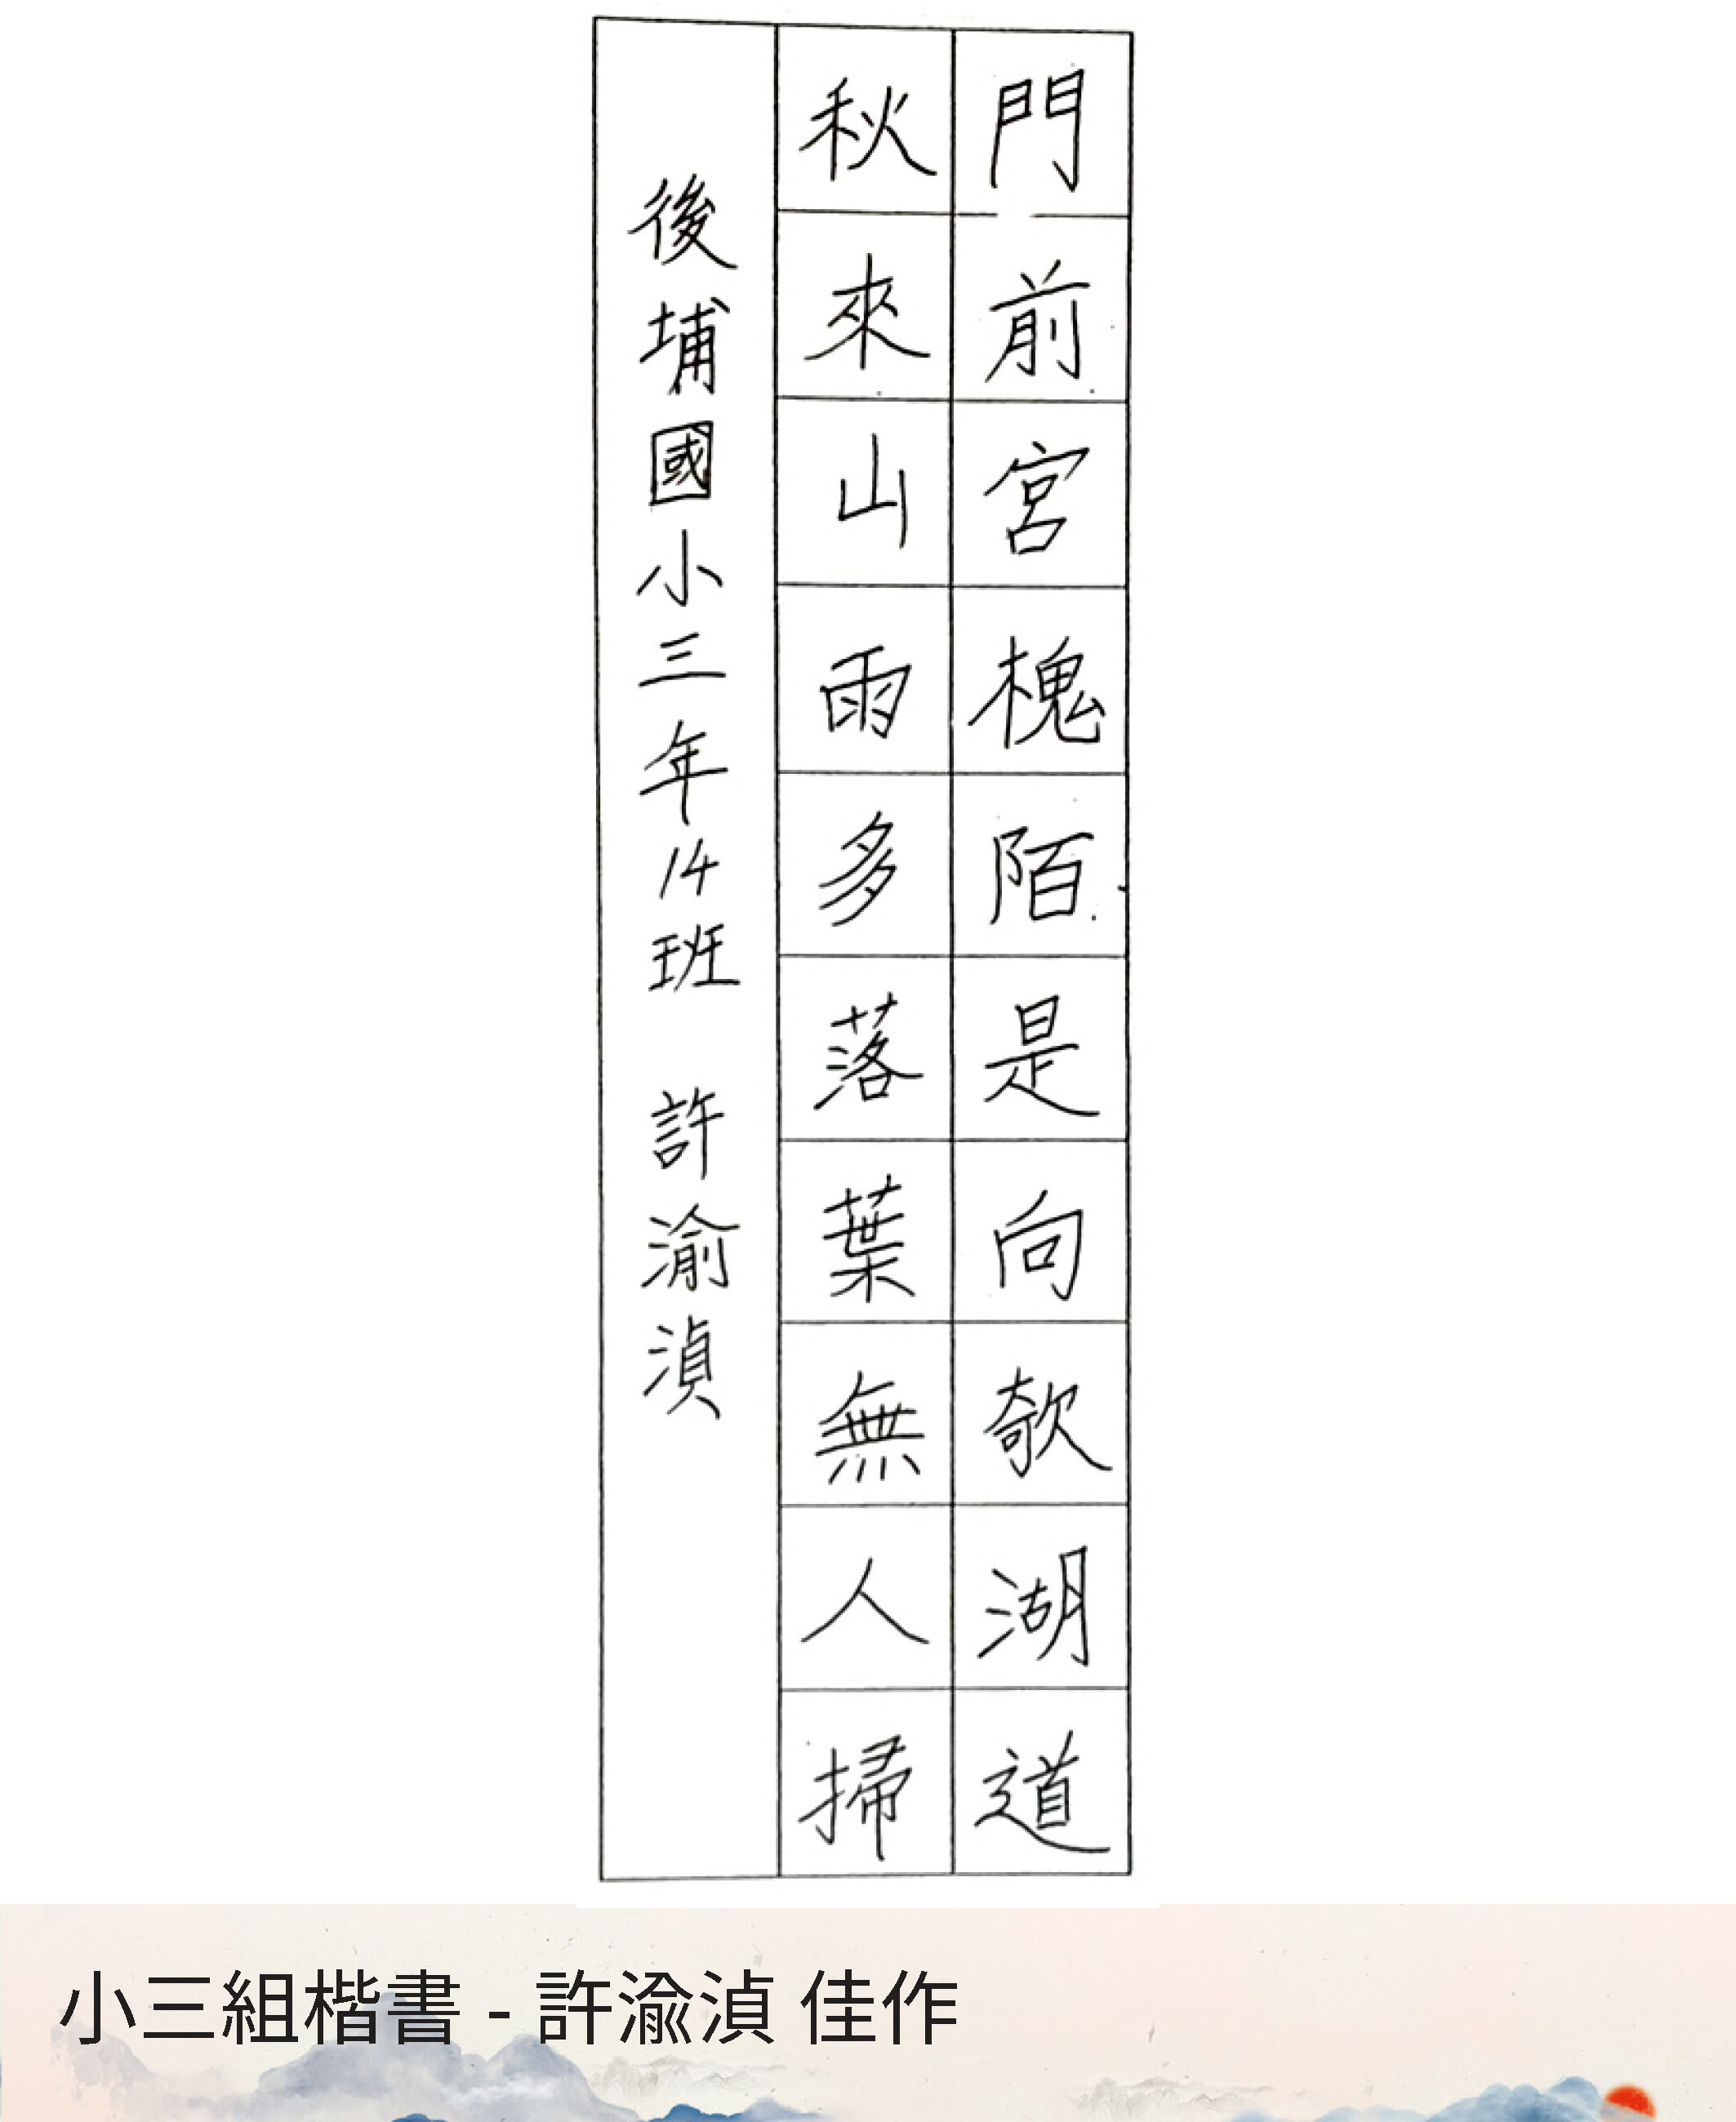 門前宮槐陌是向欹湖道
秋來山雨多落葉無人掃
後埔國小三年14班 許渝湞
小三組楷書 - 許渝湞 佳作